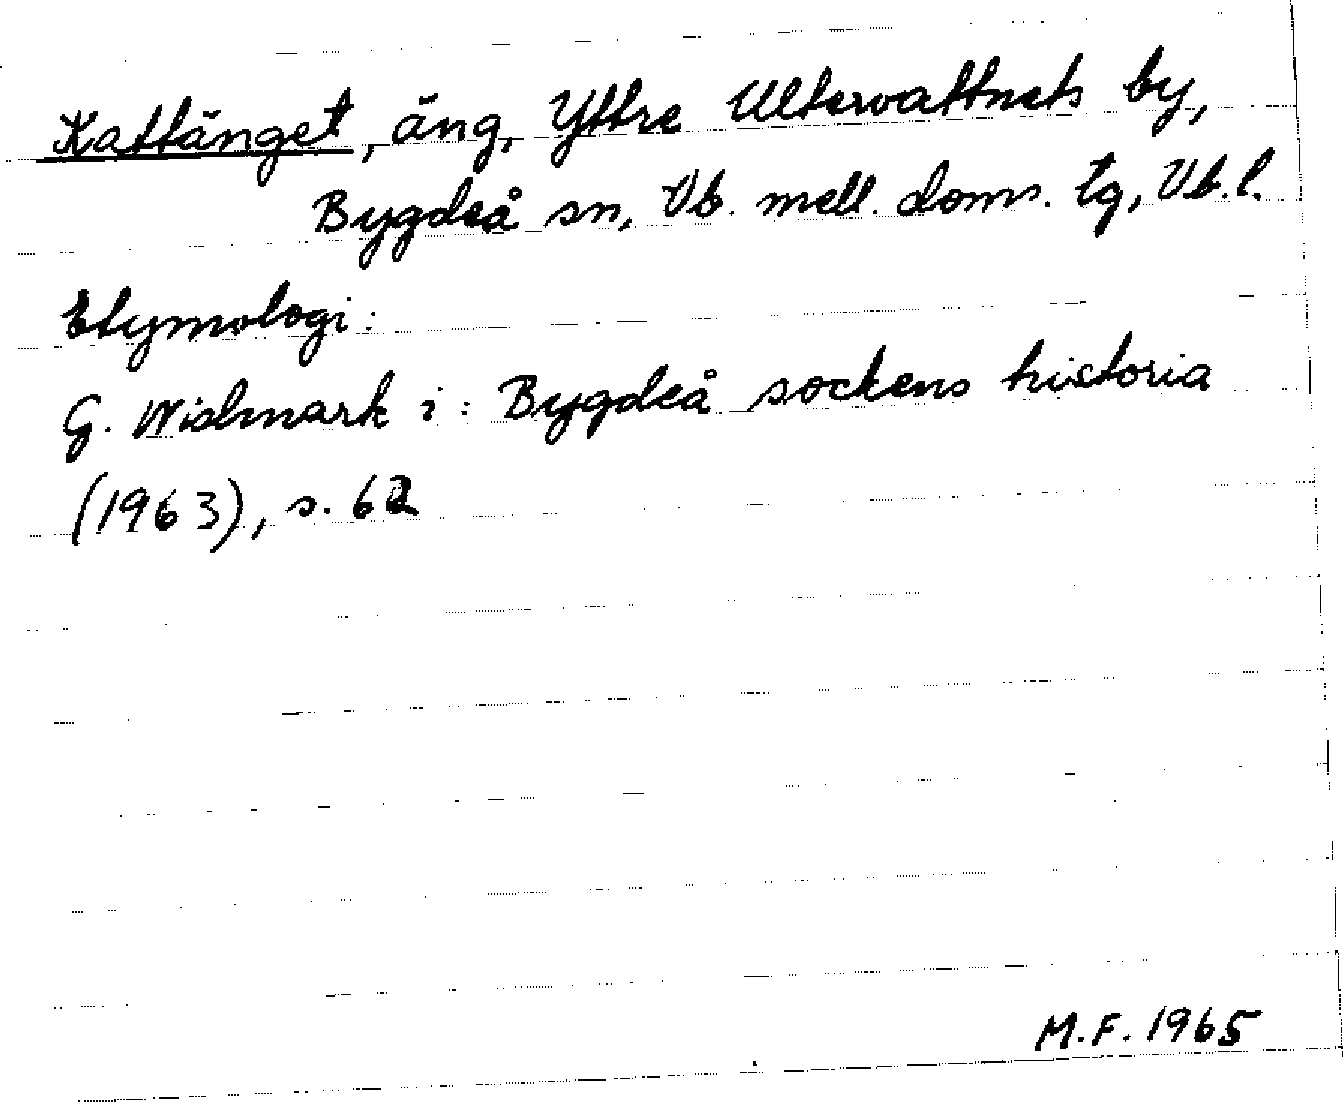 Kattänget, äng, Yttre Ultervattnets by,
Bygdeå sn, Vb. mell. doms. tg, Vb. l.
Etymologi:
G. Widmark i: Bygdeå sockens historia
(1963), s. 62
M.F. 1965